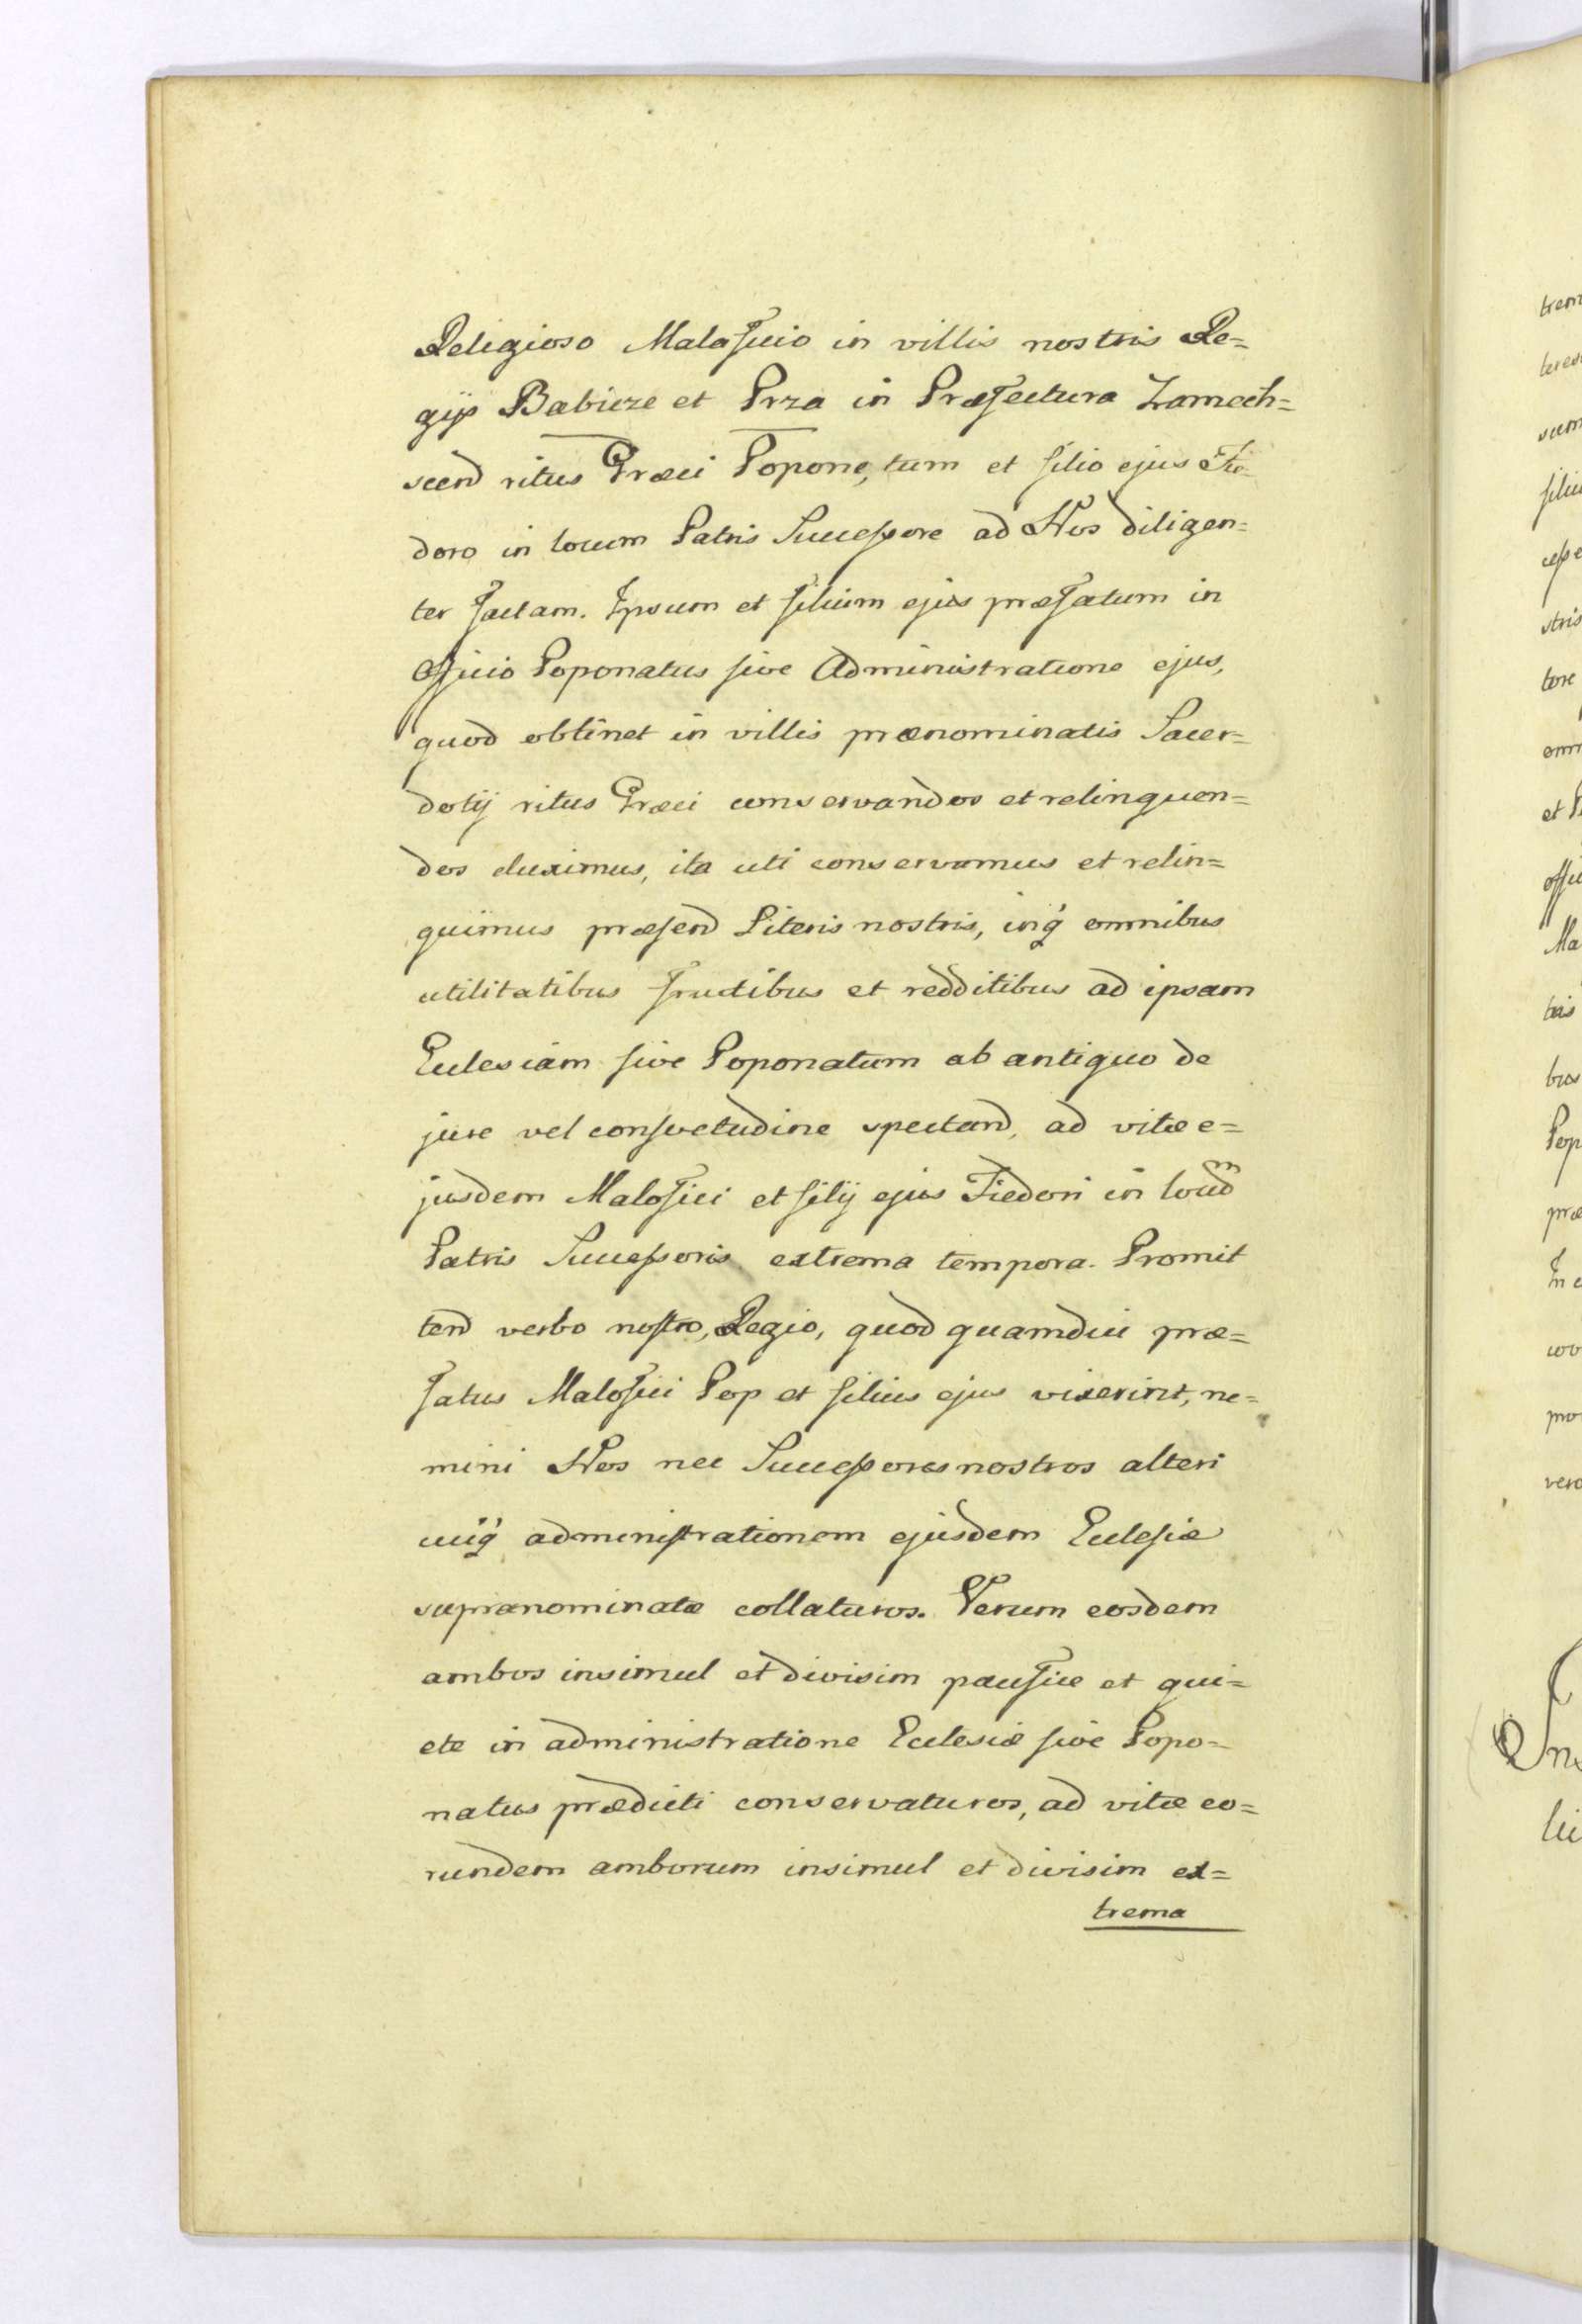 Religioso Malaficio in villis nostris Re=
gijs Babicze et Prza in Præfectura Zamech=
scend ritus Græci Popone, tum et filio ejus Fie=
doro in locum Patris Successore ad Nos diligen=
ter factam. Ipsum et filium ejus præfatum in
Officio Poponatus sive Administratione ejus,
quod obtinet in villis prænominatis Sacer=
dotij ritus Græci conservandos et relinquen=
dos duximus, ita uti conservamus et relin=
quimus præsend Literis nostris, inq́ omnibus
utilitatibus fructibus et redditibus ad ipsam
Eclesiam sive Poponatum ab antiquo de
jure vel consvetudine spectand, ad vitæ e=
jusdem Malofici et filij ejus Fiedori in locum
Patris Successoris extrema tempora. Promit
tend verbo nostro, Regio, quod quamdiu præ=
fatus Malofici Pop et filius ejus vixerint, ne=
mini Nos nec Successores nostros alteri
cuiq́ administrationem ejusdem Eclesiæ
supranominatæ collaturos. Verum eosdem
ambos insimul et divisim paccifice et qui=
ete in administratione Ecclesiæ sive Popo=
natus prædicti conservaturos, ad vitæ eo=
rundem amborum insimul et divisim ex=
trema